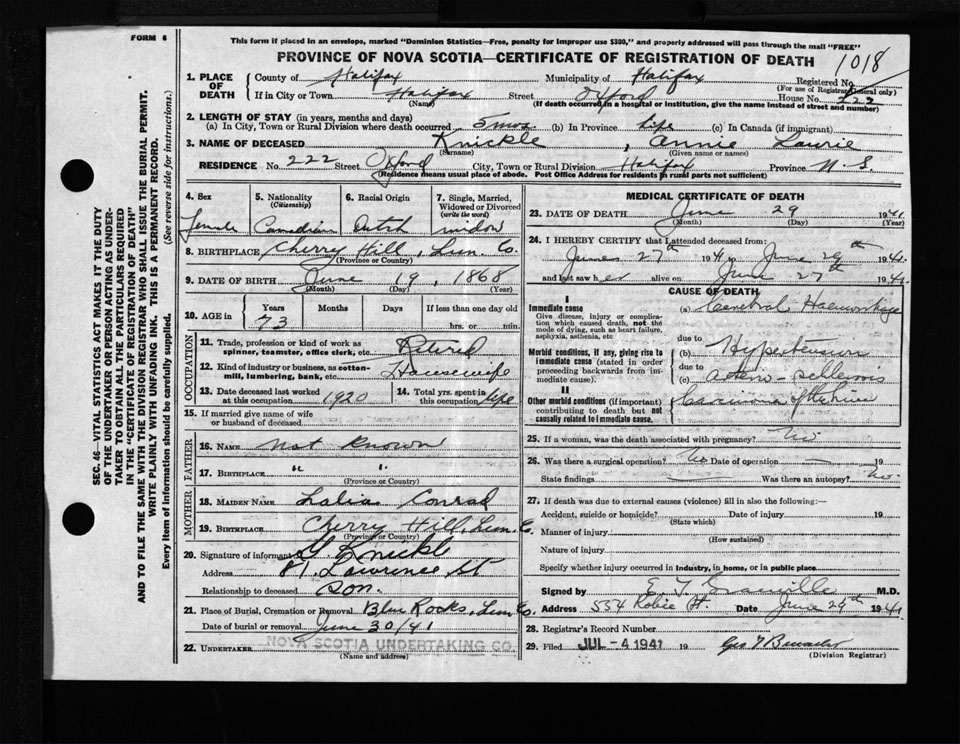 FORM 6
This form if placed in an envelope, marked "Dominion Statistics—Free, penalty for improper use $300," and properly addressed will pass through the mail "FREE"
PROVINCE OF NOVA SCOTIA—CERTIFICATE OF REGISTRATION OF DEATH
1018
SEC. 46—VITAL STATISTICS ACT MAKES IT THE DUTY
OF THE UNDERTAKER OR PERSON ACTING AS UNDER-
TAKER TO OBTAIN ALL THE PARTICULARS REQUIRED
IN THE "CERTIFICATE OF REGISTRATION OF DEATH"
AND TO FILE THE SAME WITH THE DIVISION REGISTRAR WHO SHALL ISSUE THE BURIAL PERMIT.
WRITE PLAINLY WITH UNFADING INK. THIS IS A PERMANENT RECORD.
Every item of information should be carefully supplied. (See reverse side for instructions.)
1. PLACE OF DEATH County of Halifax Municipality of Halifax Registered No.
(For use of Registrar General only)
If in City or Town Halifax Street Oxford House No. 222
(Name) (If death occurred in a hospital or institution, give the name instead of street and number)
2. LENGTH OF STAY (in years, months and days)
(a) In City, Town or Rural Division where death occurred 5 mos (b) In Province life (c) In Canada (if immigrant)
3. NAME OF DECEASED Knickle, Annie Laurie
(Surname) (Given name or names)
RESIDENCE No. 222 Street Oxford City, Town or Rural Division Halifax Province N-S.
(Residence means usual place of abode. Post Office Address for residents in rural parts not sufficient)
4. Sex 5. Nationality (Citizenship) 6. Racial Origin 7. Single, Married, Widowed or Divorced (write the word)
Female Canadian Dutch widow
8. BIRTHPLACE Cherry Hill, Lun. Co.
(Province or Country)
9. DATE OF BIRTH June 19, 1868
(Month) (Day) (Year)
10. AGE in Years Months Days If less than one day old
73 hrs. or min.
OCCUPATION
11. Trade, profession or kind of work as spinner, teamster, office clerk, etc. Retired
12. Kind of industry or business, as cotton-mill, lumbering, bank, etc. Housewife
13. Date deceased last worked at this occupation 1920 14. Total yrs. spent in this occupation life
15. If married give name of wife or husband of deceased
FATHER
16. NAME not known
17. BIRTHPLACE " "
(Province or Country)
MOTHER
18. MAIDEN NAME Conrad
19. BIRTHPLACE Cherry Hill, Lun. Co.
(Province or Country)
20. Signature of informant G Knickle
Address 81 Lawrence St
Relationship to deceased son.
21. Place of Burial, Cremation or Removal Blue Rocks, Lun Co.
Date of burial or removal June 30/41
22. UNDERTAKER NOVA SCOTIA UNDERTAKING CO.
(Name and address)
MEDICAL CERTIFICATE OF DEATH
23. DATE OF DEATH June 29 1941
(Month) (Day) (Year)
24. I HEREBY CERTIFY that I attended deceased from:
June 27th 1941 to June 29th 1941
and last saw her alive on June 27th 1941
CAUSE OF DEATH
I
Immediate cause
Give disease, injury or complication which caused death, not the mode of dying, such as heart failure, asphyxia, asthenia, etc
(a) Cerebral Haemorrhage
due to
Morbid conditions, if any, giving rise to immediate cause (stated in order proceeding backwards from immediate cause).
(b) Hypertension
due to
(c) arterio-sclerosis
II
Other morbid conditions (if important) contributing to death but not causally related to immediate cause.
Carcinoma of
25. If a woman, was the death associated with pregnancy? No
26. Was there a surgical operation? No Date of operation 19
State findings Was there an autopsy? No
27. If death was due to external causes (violence) fill in also the following:—
Accident, suicide or homicide? Date of injury 19
(State which)
Manner of injury
(How sustained)
Nature of injury
Specify whether injury occurred in industry, in home, or in public place
Signed by E. T. Granville M.D.
Address 554 Robie St. Date June 29th 1941
28. Registrar's Record Number
29. Filed JUL - 4 1941 19
(Division Registrar)